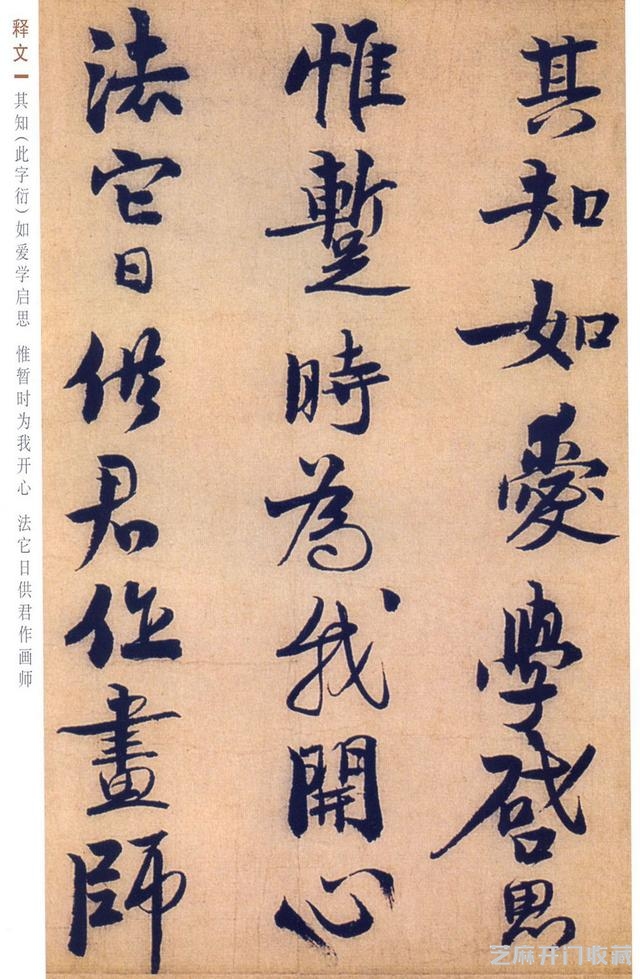 其知如愛學啓思
惟蹔時為我開心
法它日供君作畫師
释文
其知（此字衍）如爱学启思 惟暂时为我开心 法它日供君作画师
芝麻开门收藏